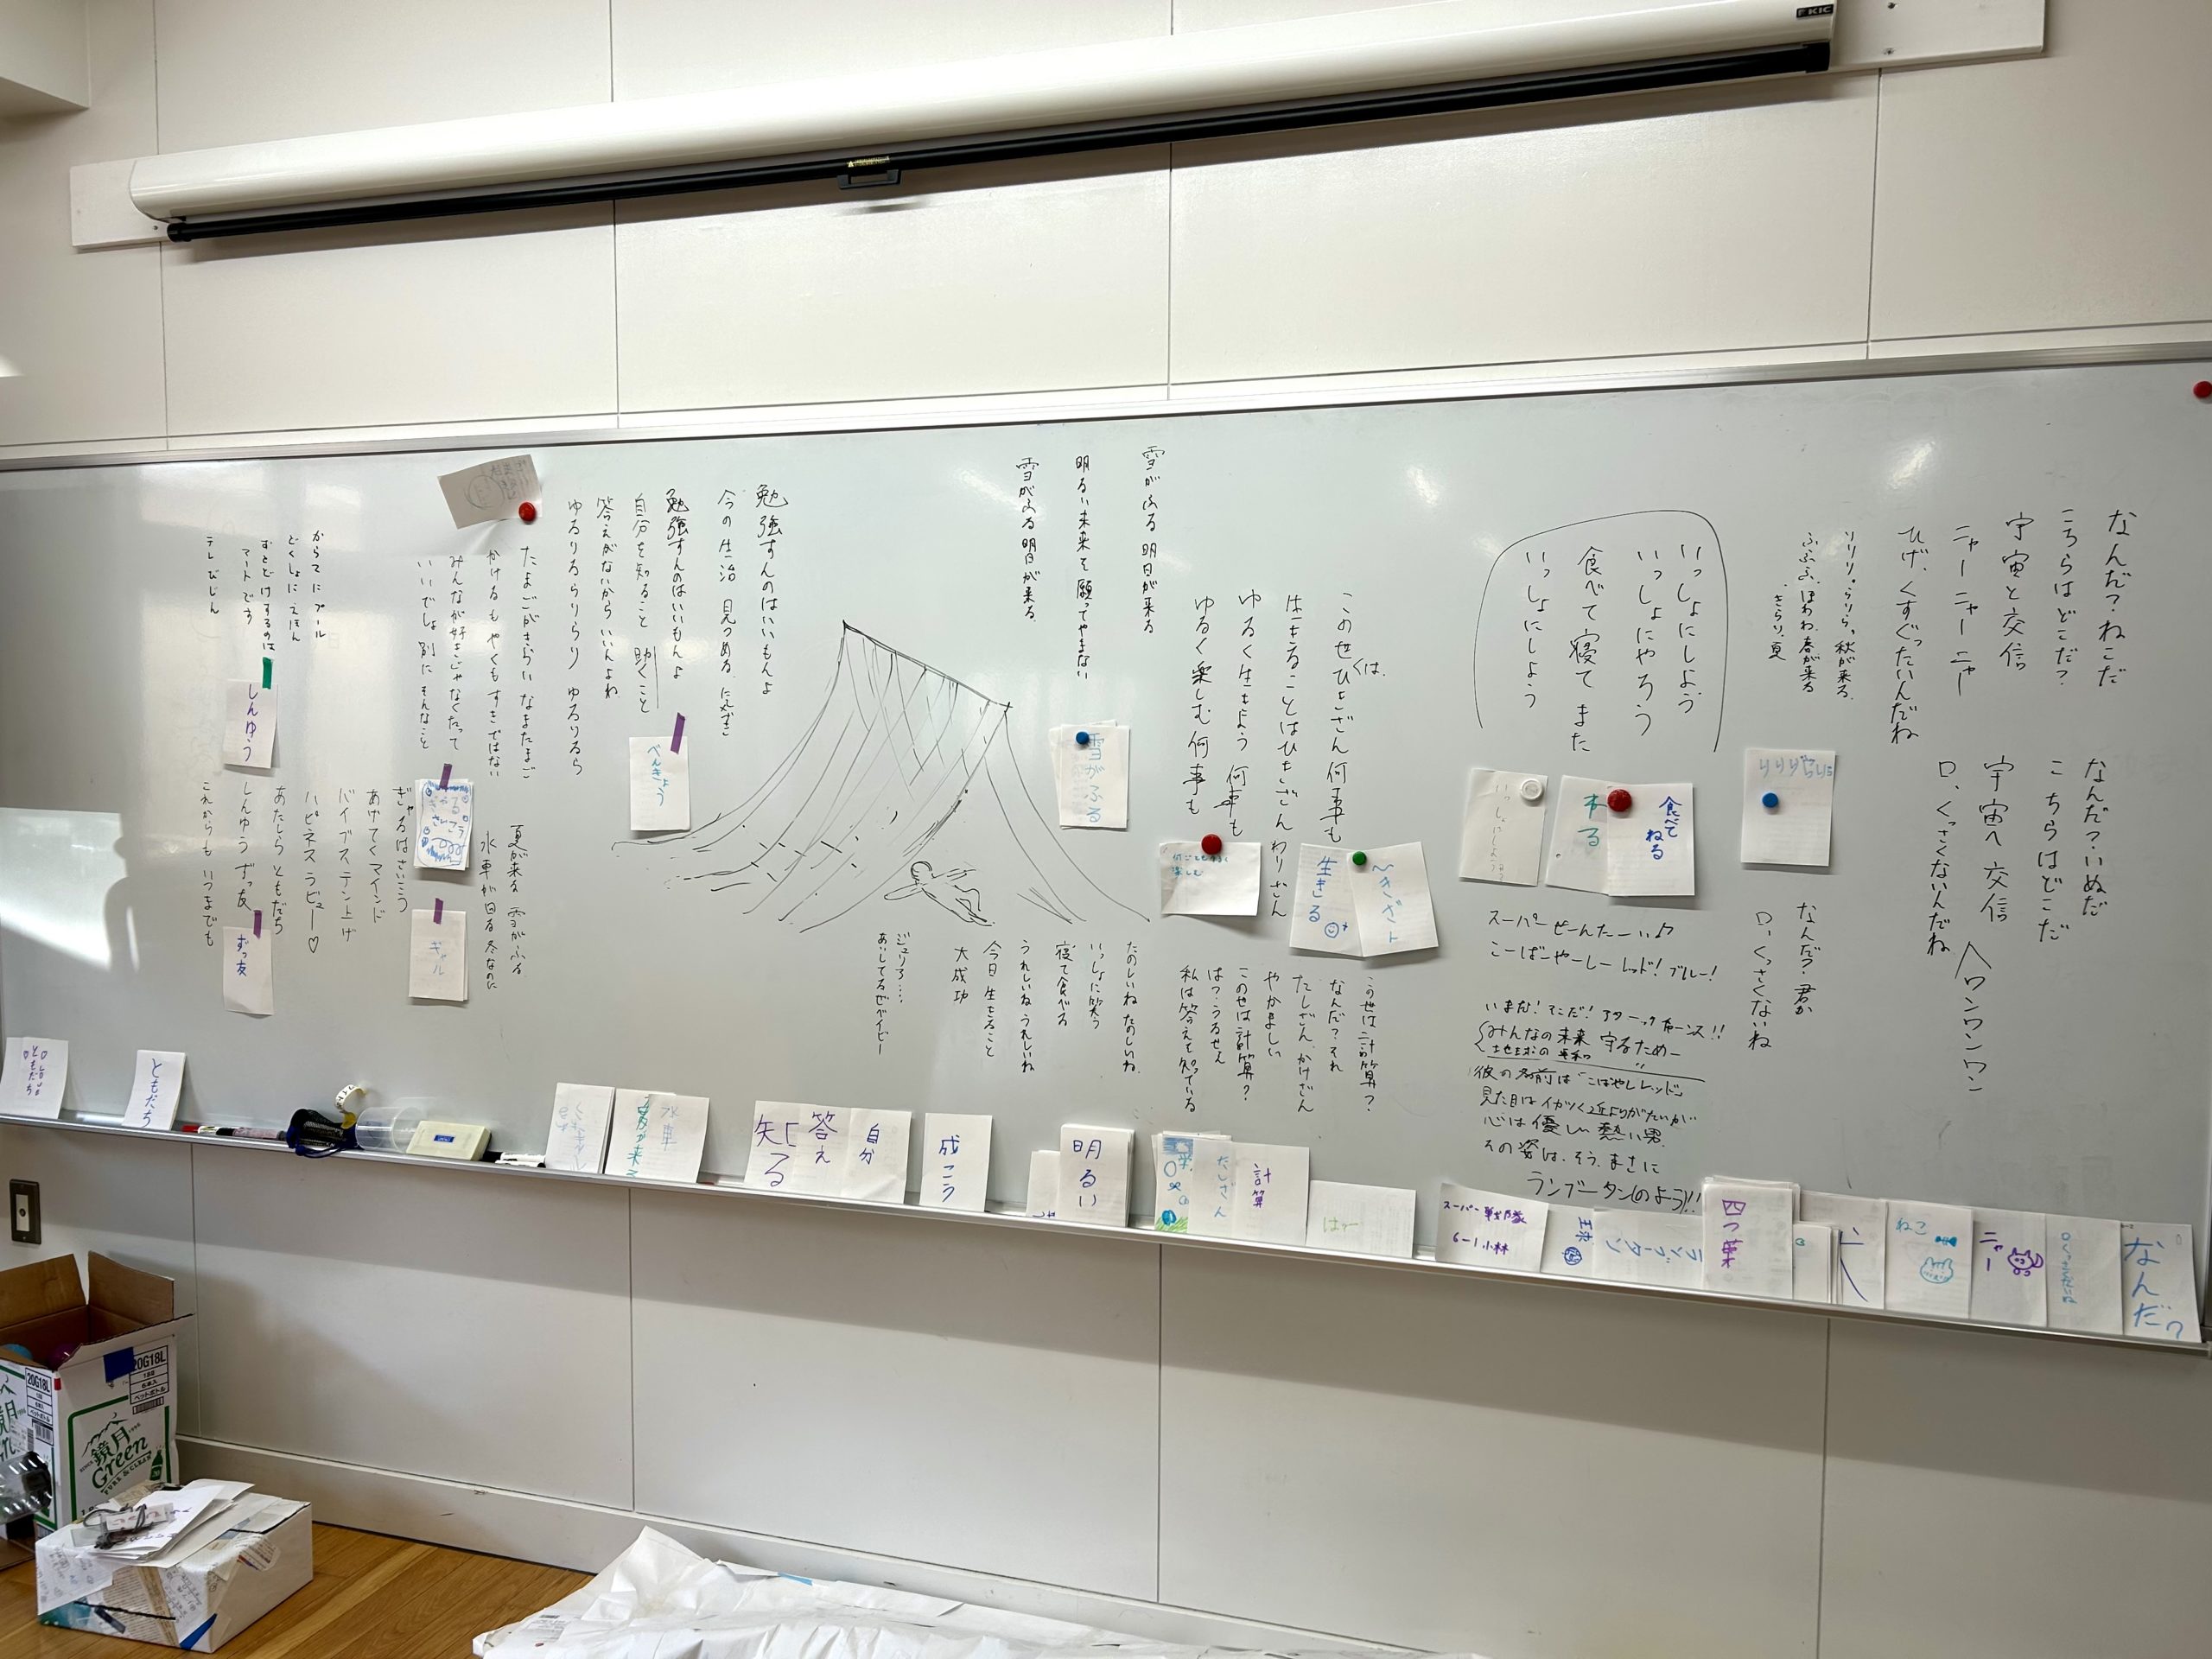 なんだ？ねこだ
こちらはどこだ？
宇宙と交信
ニャー ニャー ニャー
ひげ、くすぐったいんだね
なんだ？いぬだ
こちらはどこだ
宇宙へ 交信
ワンワンワン
口、くっさくないんだね
リリリ。らりらっ 秋が来る
ふふふ、ほわわ 春が来る
きらり、夏
なんだ？君か
口、くっさくないね
いっしょにしよう
いっしょにやろう
食べて寝て また
いっしょにしよう
スーパーせーんたーい♪
こーばーやーしー レッド！ブルー！
いまだ！そこだ！
みんなの未来 守るためー
地球の 平和 〃
彼の名前は「こばやしレッド」
見た目はイカツく近よりがたいが
心は優しい熱い男
その姿は、そう、まさに
ランブータン(のよう)!!
このせひきざん何事も
くは、
生きることはひきざん わりざん
ゆるく生きよう 何事も
ゆるく楽しむ何事も
この世は計算？
なんだ？それ
たしざん、かけざん
やかましい
このせは計算？
はっ？うるせえ
私は答えを知っている
雪がふる 明日が来る
明るい未来を願ってやまない
雪がふる 明日が来る
たのしいね たのしいね
いっしょに笑う
寝て食べる
うれしいね うれしいね
今日生きること
大成功
ジュリろ....
あいしてるぜベイビー
勉強すんのはいいもんよ
今の生治 見つめる
勉強すんのはいいもんよ
自分を知ること 助くこと
答えがないから いいんよね
ゆるりるらりらり ゆるりるら
たまごがきらい なまたまご
かけるも やくも すきではない
みんなが好きじゃなくたって
いいでしょ 別に そんなこと
夏が来る 雪がふる
水車が回る 冬なのに
ぎゃるはさいこう
あげてくマインド
バイブス テン上げ
ハピネス ラビュー♡
あたしら ともだち
しんゆう ずっ友
これからも いつまでも
からてに プール
どくしょに えほん
アートです
食べて
ねる
雪がふる
生きる
べんきょう
ギャル
しんゆう
ずっ友
ともだち
ともだち
夏が来る
水車
知る
答え
自分
成こう
明るい
たしざん
計算
スーパー戦隊
6-1小林
ランブータン
四つ葉
ねこ
ニャー
なんだ？
20G18L
20G18L
鏡月
Green
KIC